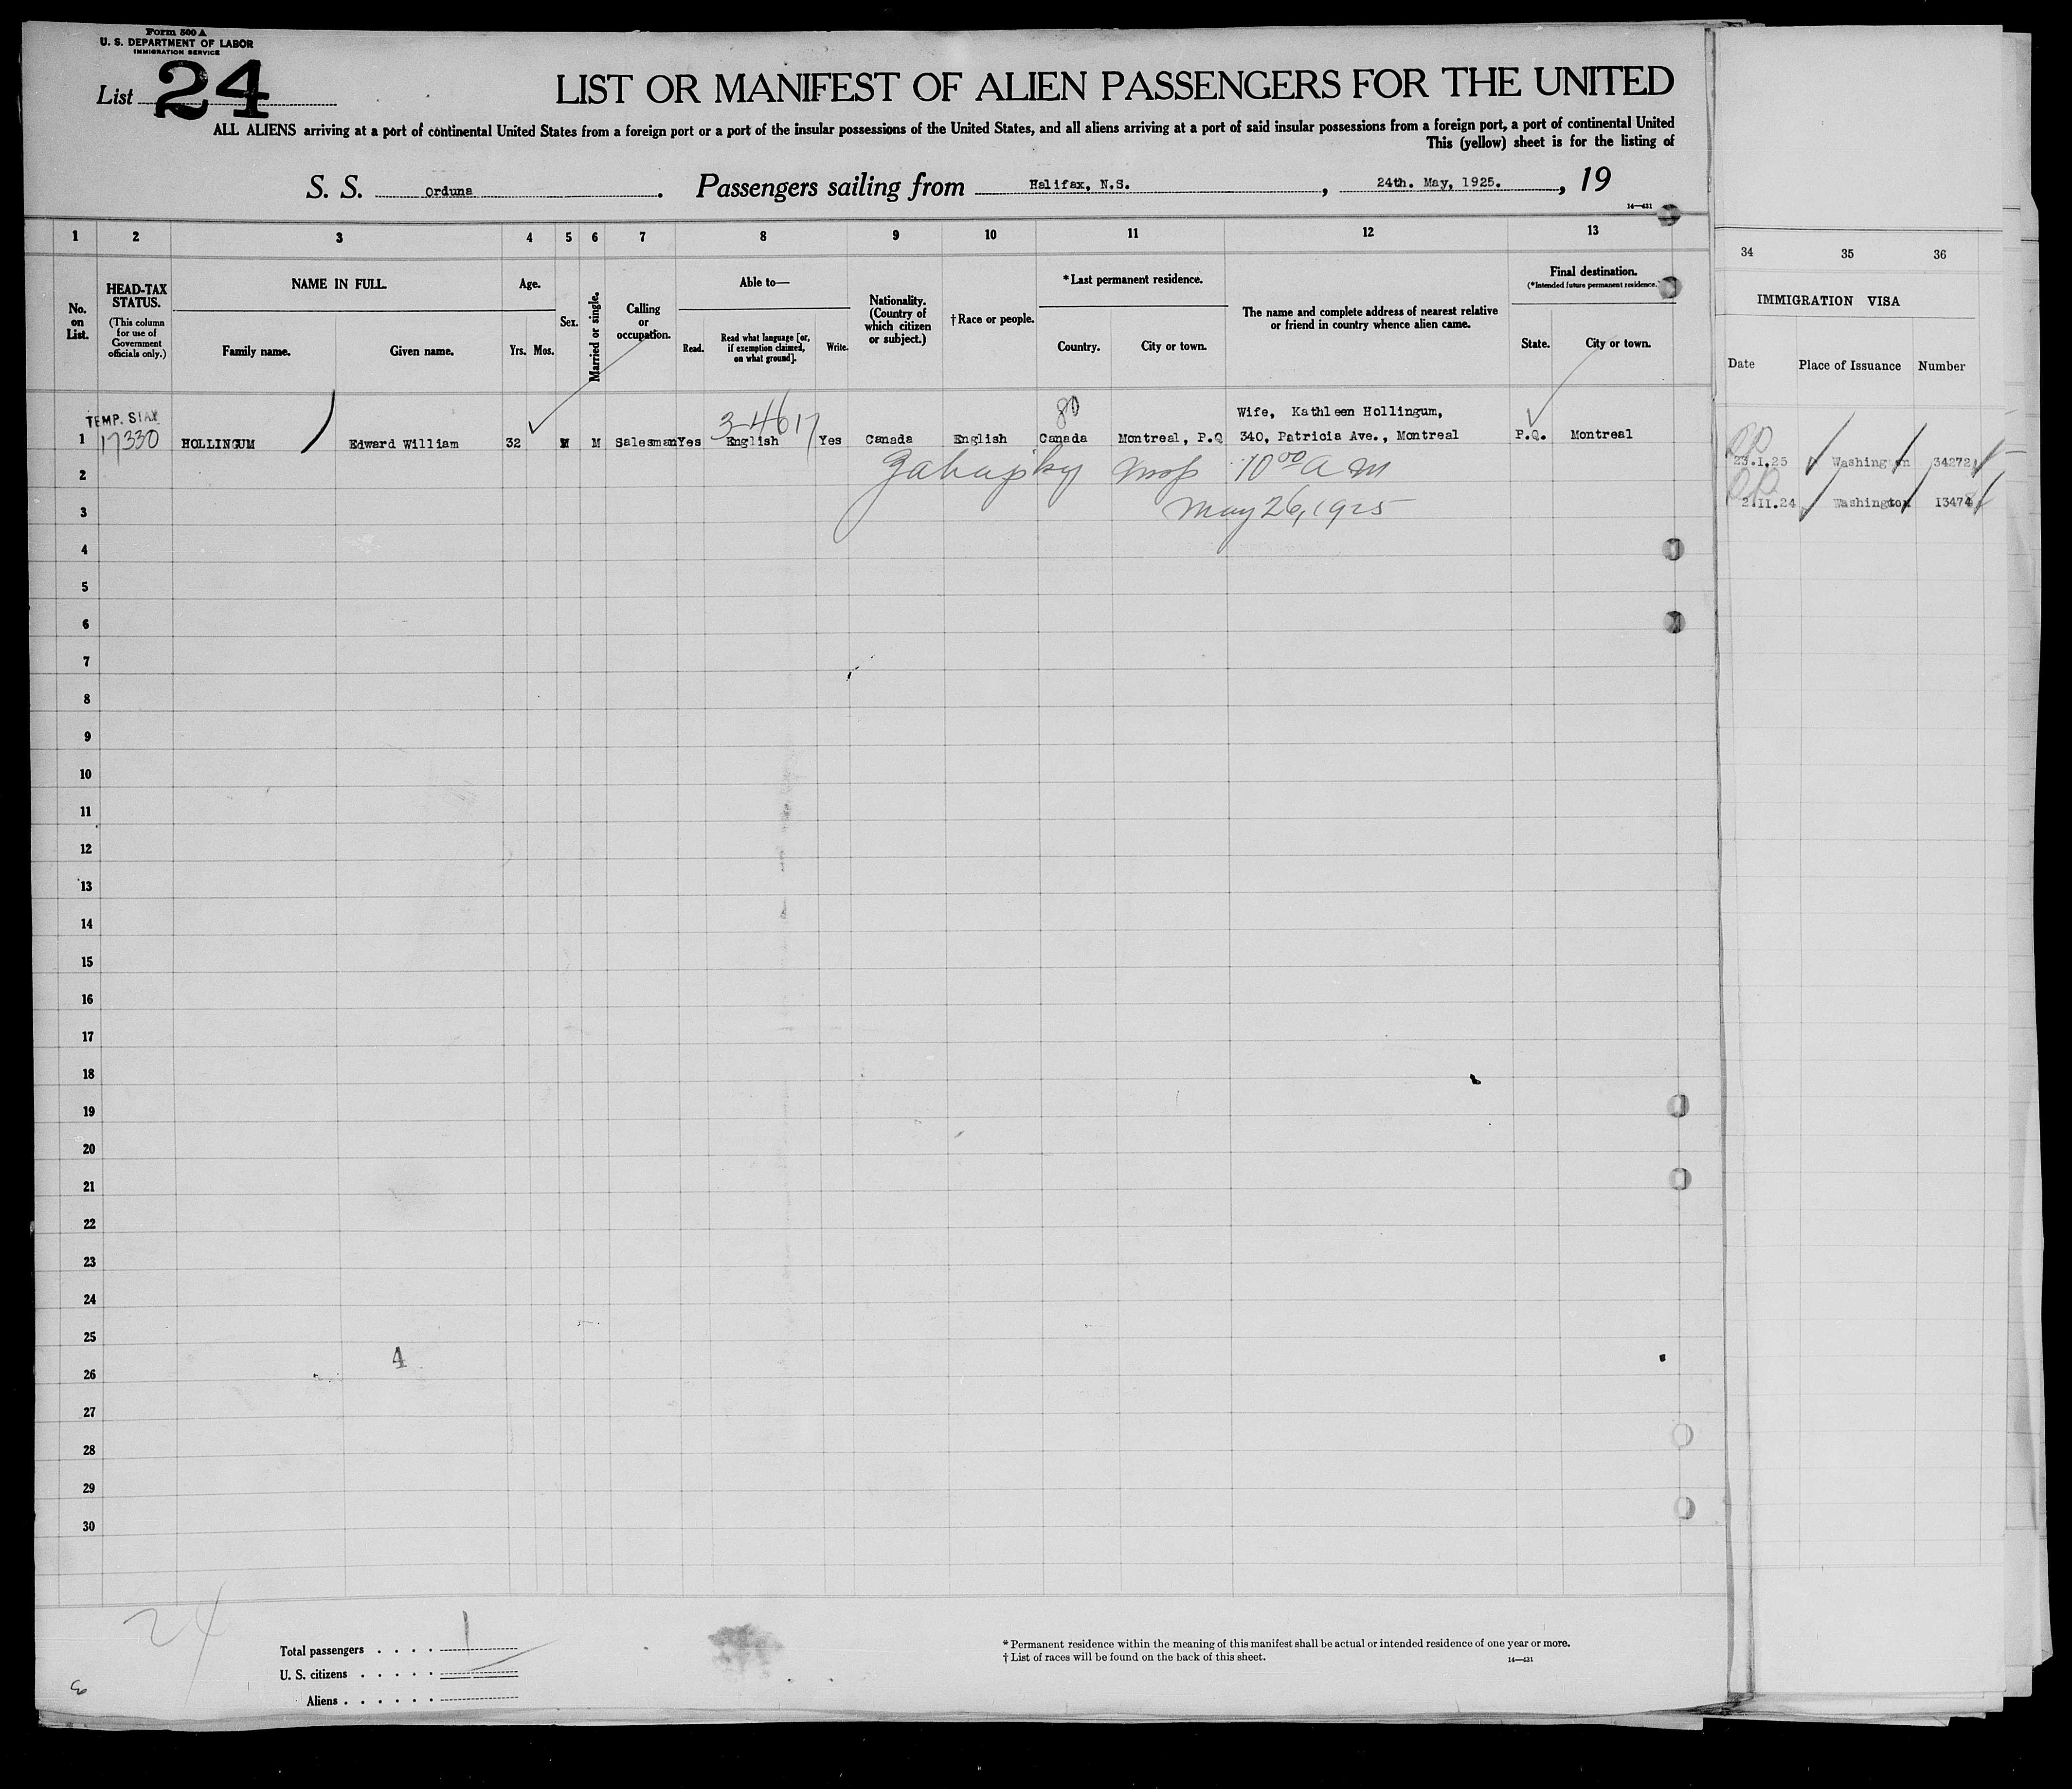 Form 500 A
U. S. DEPARTMENT OF LABOR
IMMIGRATION SERVICE
List 24
LIST OR MANIFEST OF ALIEN PASSENGERS FOR THE UNITED
ALL ALIENS arriving at a port of continental United States from a foreign port or a port of the insular possessions of the United States, and all aliens arriving at a port of said insular possessions from a foreign port, a port of continental United
This (yellow) sheet is for the listing of
S. S. Orduna. Passengers sailing from Halifax, N.S., 24th. May, 1925., 19
14—431
1 2 3 4 5 6 7 8 9 10 11 12 13
No. on List.
HEAD-TAX STATUS.
(This column for use of Government officials only.)
NAME IN FULL.
Family name. Given name.
Age.
Yrs. Mos.
Sex.
Married or single.
Calling or occupation.
Able to—
Read. Read what language [or, if exemption claimed, on what ground]. Write.
Nationality. (Country of which citizen or subject.)
†Race or people.
*Last permanent residence.
Country. City or town.
The name and complete address of nearest relative or friend in country whence alien came.
Final destination.
(*Intended future permanent residence.
State. City or town.
34 35 36
IMMIGRATION VISA
Date Place of Issuance Number
TEMP. STAY
80
Wife, Kathleen Hollingum,
1 17330 HOLLINGUM Edward William 32 M M Salesman Yes 3-4617 English Yes Canada English Canada Montreal, P.Q 340, Patricia Ave., Montreal P.Q. Montreal
23.1.25 Washington 34272
2 10 00 A M
2.11.24 Washington 13474
3 May 26, 1925
4
5
6
7
8
9
10
11
12
13
14
15
16
17
18
19
20
21
22
23
24
25
4
26
27
28
29
30
24
Total passengers . . . . 1
U. S. citizens . . . . .
Aliens . . . . . .
* Permanent residence within the meaning of this manifest shall be actual or intended residence of one year or more.
† List of races will be found on the back of this sheet.
14—431